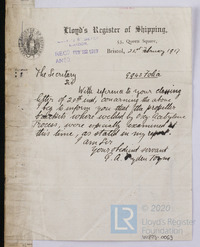 Lloyd's Register of Shipping,
Queen Square,
Bristol, 21st February 1917
The Secretary
With reference to your
letter of 20th inst, concerning the above
I beg to inform you that the propeller
brackets where welded by Oxy Acetylene
Process, were specially examined at
this time, as stated in my report.
I am Sir
Your obedient servant
© 2020
Lloyd's Register
Foundation